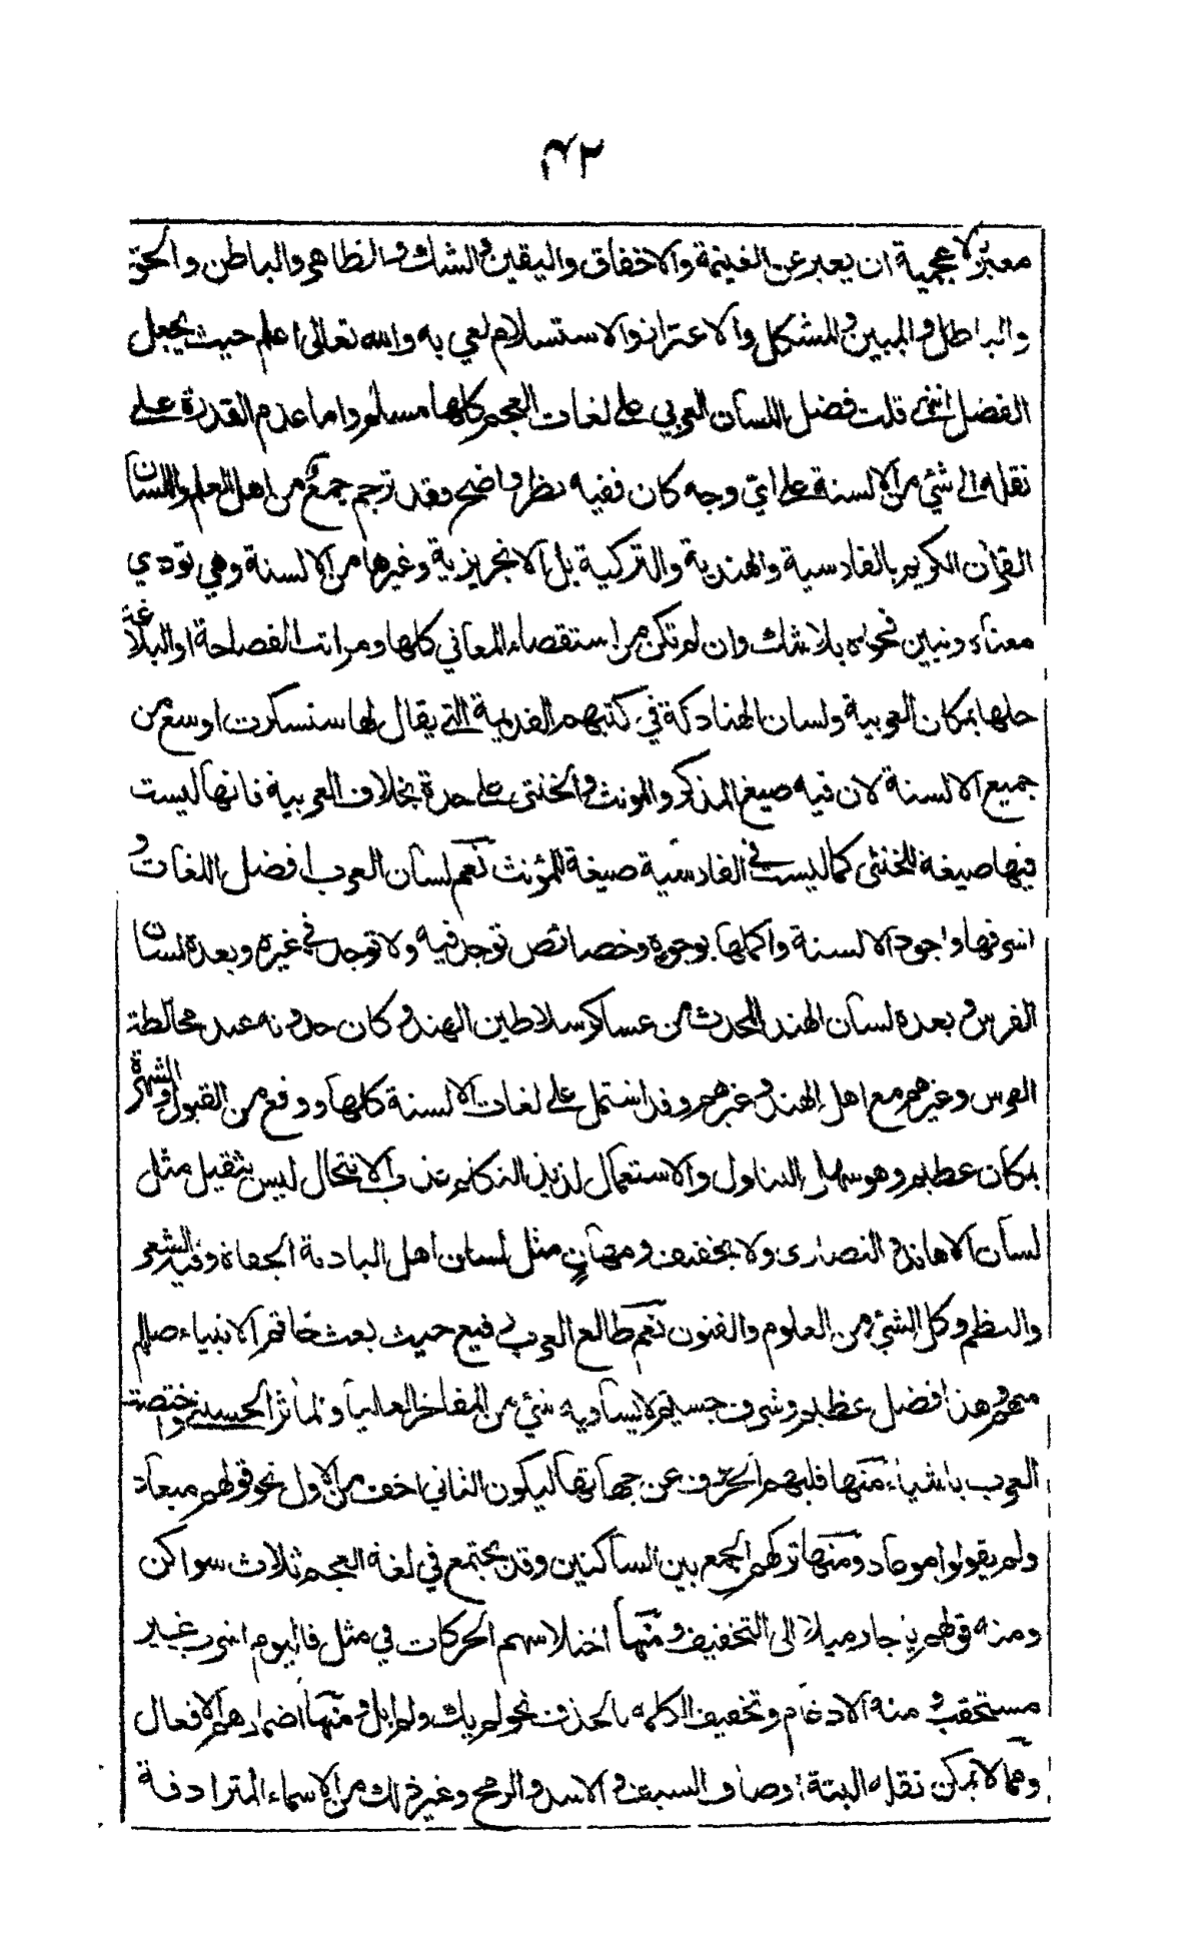 ٤٢
معبّر الاعجمية ان يعبر عن الغنيمة والاخفاق واليقين والشك والظاهر والباطن والحق
والباطل والمبين والمشكل والاعتزاز والاستسلام لعي به والله تعالى اعلم حيث يجعل
الفضل انتهى قلت فضل اللسان العربي على لغات العجم كلها مسلم واما عدم القدرة على
نقله الى شئ من الالسنة على ايّ وجه كان ففيه نظر واضح وقد ترجم جمع من اهل العلم واللسان
القرأن الكريم بالفارسية والهندية والتركية بل الانجريزية وغيرها من الالسنة وهي تؤدي
معناه وتبين فحواه بلا شك وان لم تكن من استقصاء المعاني كلها ومراتب الفصاحة او البلاغة
جلها بمكان العربية ولسان الهنادكة في كتبهم القديمة التي يقال لها سنسكرت اوسع من
جميع الالسنة لان فيه صيغ المذكر والمونث والخنثى على حدة بخلاف العربية فانها ليست
فيها صيغة للخنثى كما ليست في الفارسية صيغة للمؤنث نعم لسان العرب افضل اللغات و
اشرفها واجود الالسنة واكملها بوجوه وخصائص توجد فيه ولا توجد في غيره وبعده لسان
الفرس وبعده لسان الهند المحدث من عساكر سلاطين الهند وكان حدوثه عند مخالطة
الفرس وغيرهم مع اهل الهند وغيرهم وقد اشتمل على لغات الالسنة كلها ووقع من القبول والشهرة
بمكان عظيم وهو سهل التناول والاستعمال لذيذ التكلم عذب الانتحال ليس بثقيل مثل
لسان الاهاند و النصارى ولا بخفيف ومهان مثل لسان اهل البادية الجفاة وفيه الشعر
والنظم وكل الشئ من العلوم والفنون نعم طالع العرب رفيع حيث بعث خاتم الانبياء صللم
منهم وهذا فضل عظيم وشرف جسيم لا يساويه شئ من المفاخر العليا والمأثر الحسنى واختصت
العرب باشياء منها قلبهم الحرف عن جهاتها ليكون الثاني اخف من الاول نحو قولهم ميعاد
ولم يقولوا موعاد ومنها تركهم الجمع بين الساكنين وقد يجتمع في لغة العجم ثلاث سواكن
ومنه قولهم يا حار ميلا الى التخفيف ومنها اختلاسهم الحركات في مثل فاليوم اشرب غير
مستحقب ومنه الادغام وتخفيف الكلمة بالحذف نحو لم يك ولم ابل ومنها اضمارهم الافعال
ومما لا يمكن نقله البتة اوصاف السيف والاسد والرمح وغير ذلك من الاسماء المترادفة